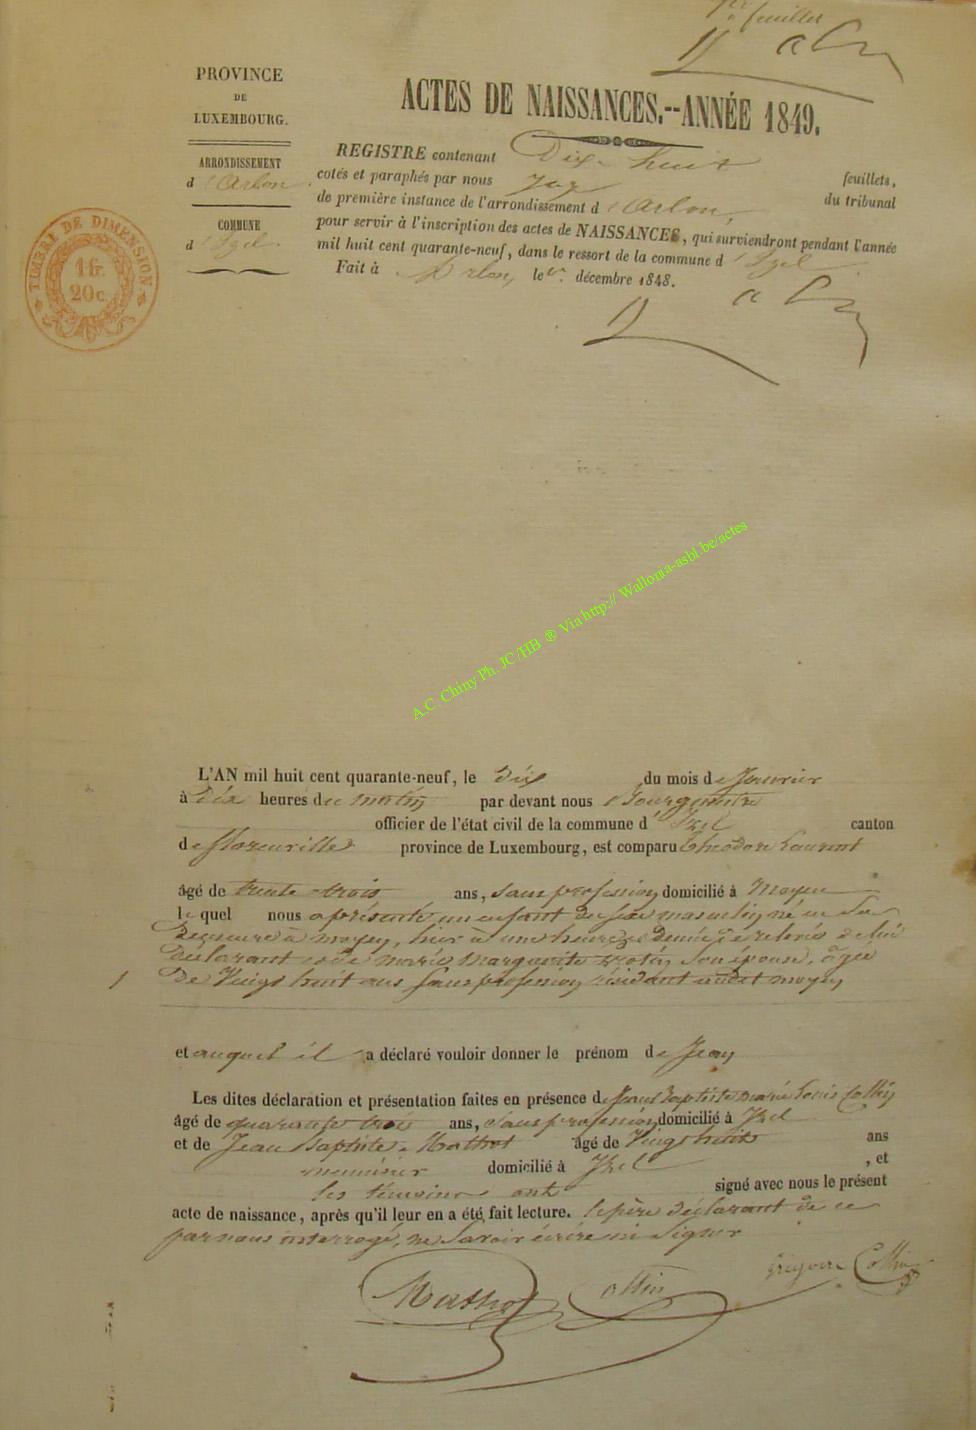 1er feuillet
PROVINCE
DE
LUXEMBOURG.
ARRONDISSEMENT
d'Arlon
COMMUNE
d'Izel
TIMBRE DE DIMENSION
1 fr.
20 c.
ACTES DE NAISSANCES.--ANNÉE 1849.
REGISTRE contenant Dix-huit feuillets,
cotés et paraphés par nous du tribunal
de première instance de l'arrondissement d'Arlon,
pour servir à l'inscription des actes de NAISSANCES, qui surviendront pendant l'année
mil huit cent quarante-neuf, dans le ressort de la commune d'Izel
Fait à Arlon, le 1er. décembre 1848.
A.C. Chiny Ph. JC/HB ® Via http:// Wallonia-asbl.be/actes
L'AN mil huit cent quarante-neuf, le Dix du mois de Janvier
à Dix heures du matin par devant nous Bourgmestre
officier de l'état civil de la commune d'Izel canton
de florenville province de Luxembourg, est comparu théodore Laurent
âgé de trente-trois ans, sans profession domicilié à Moyen
le quel nous a présenté un enfant du sexe masculin né en Sa
Demeure à moyen, hier à une heure et demie de relevée de lui
Déclarant et de marie marguerite Son épouse, âgée
De Vingt huit ans Sans profession résidant audit moyen
1
et auquel il a déclaré vouloir donner le prénom de Jean
Les dites déclaration et présentation faites en présence de Jean Baptiste marie Louis Collin
âgé de quarante trois ans, Sans profession domicilié à Izel
et de Jean Baptiste Mathot âgé de Vingt huit ans
menuisier domicilié à Izel , et
les témoins ont signé avec nous le présent
acte de naissance, après qu'il leur en a été fait lecture. le père déclarant de ce
par nous interrogé, ne Savoir écrire ni Signer
Mathot Collin Grégoire Collin